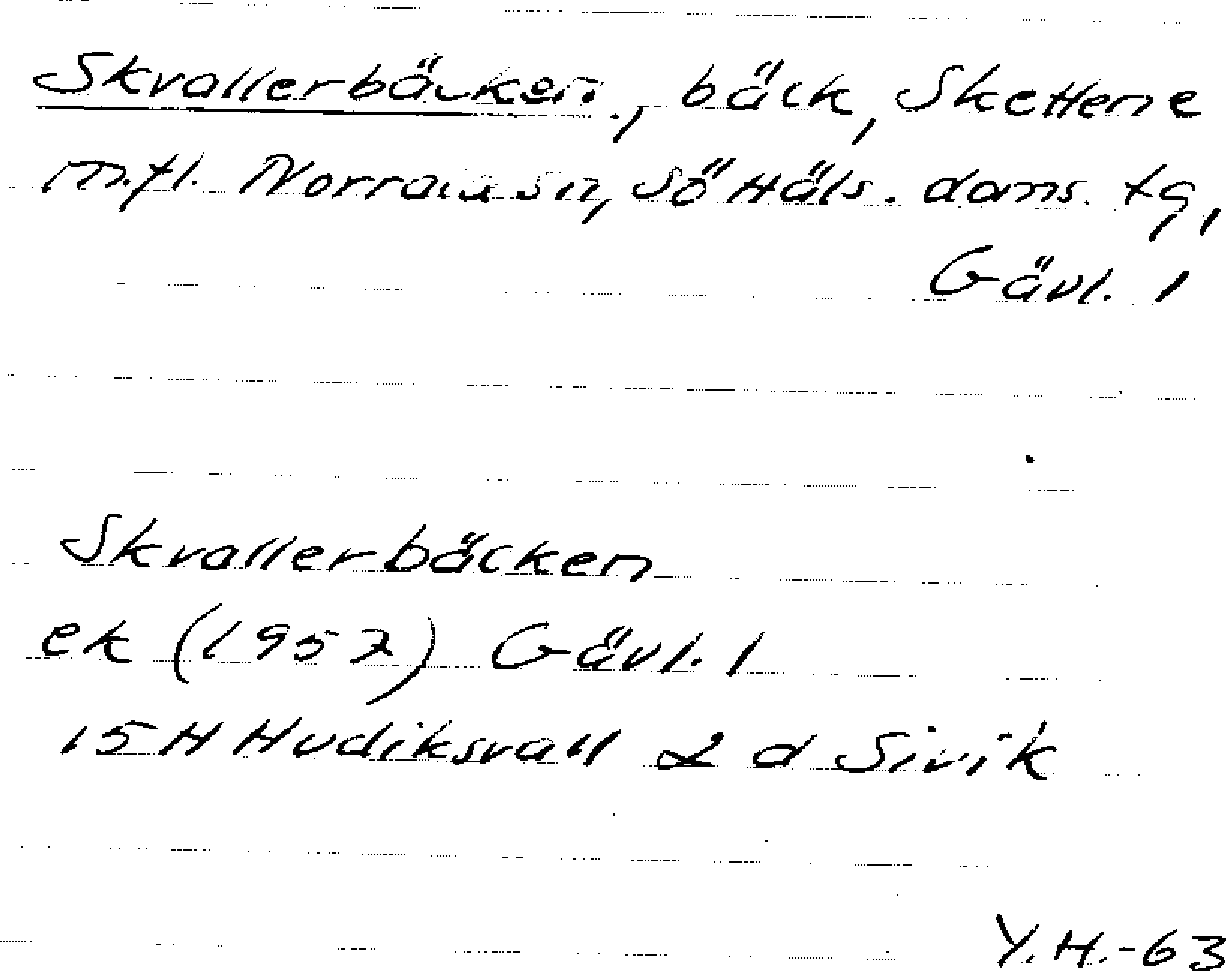 Skvallerbäcken, bäck, Skettene
m.fl. Norrala sn, Sö Häls. doms. tg,
Gävl. 1
Skvallerbäcken
ek (1952) Gävl. 1
15 H Hudiksvall 2 d Sivik
Y.H.-63